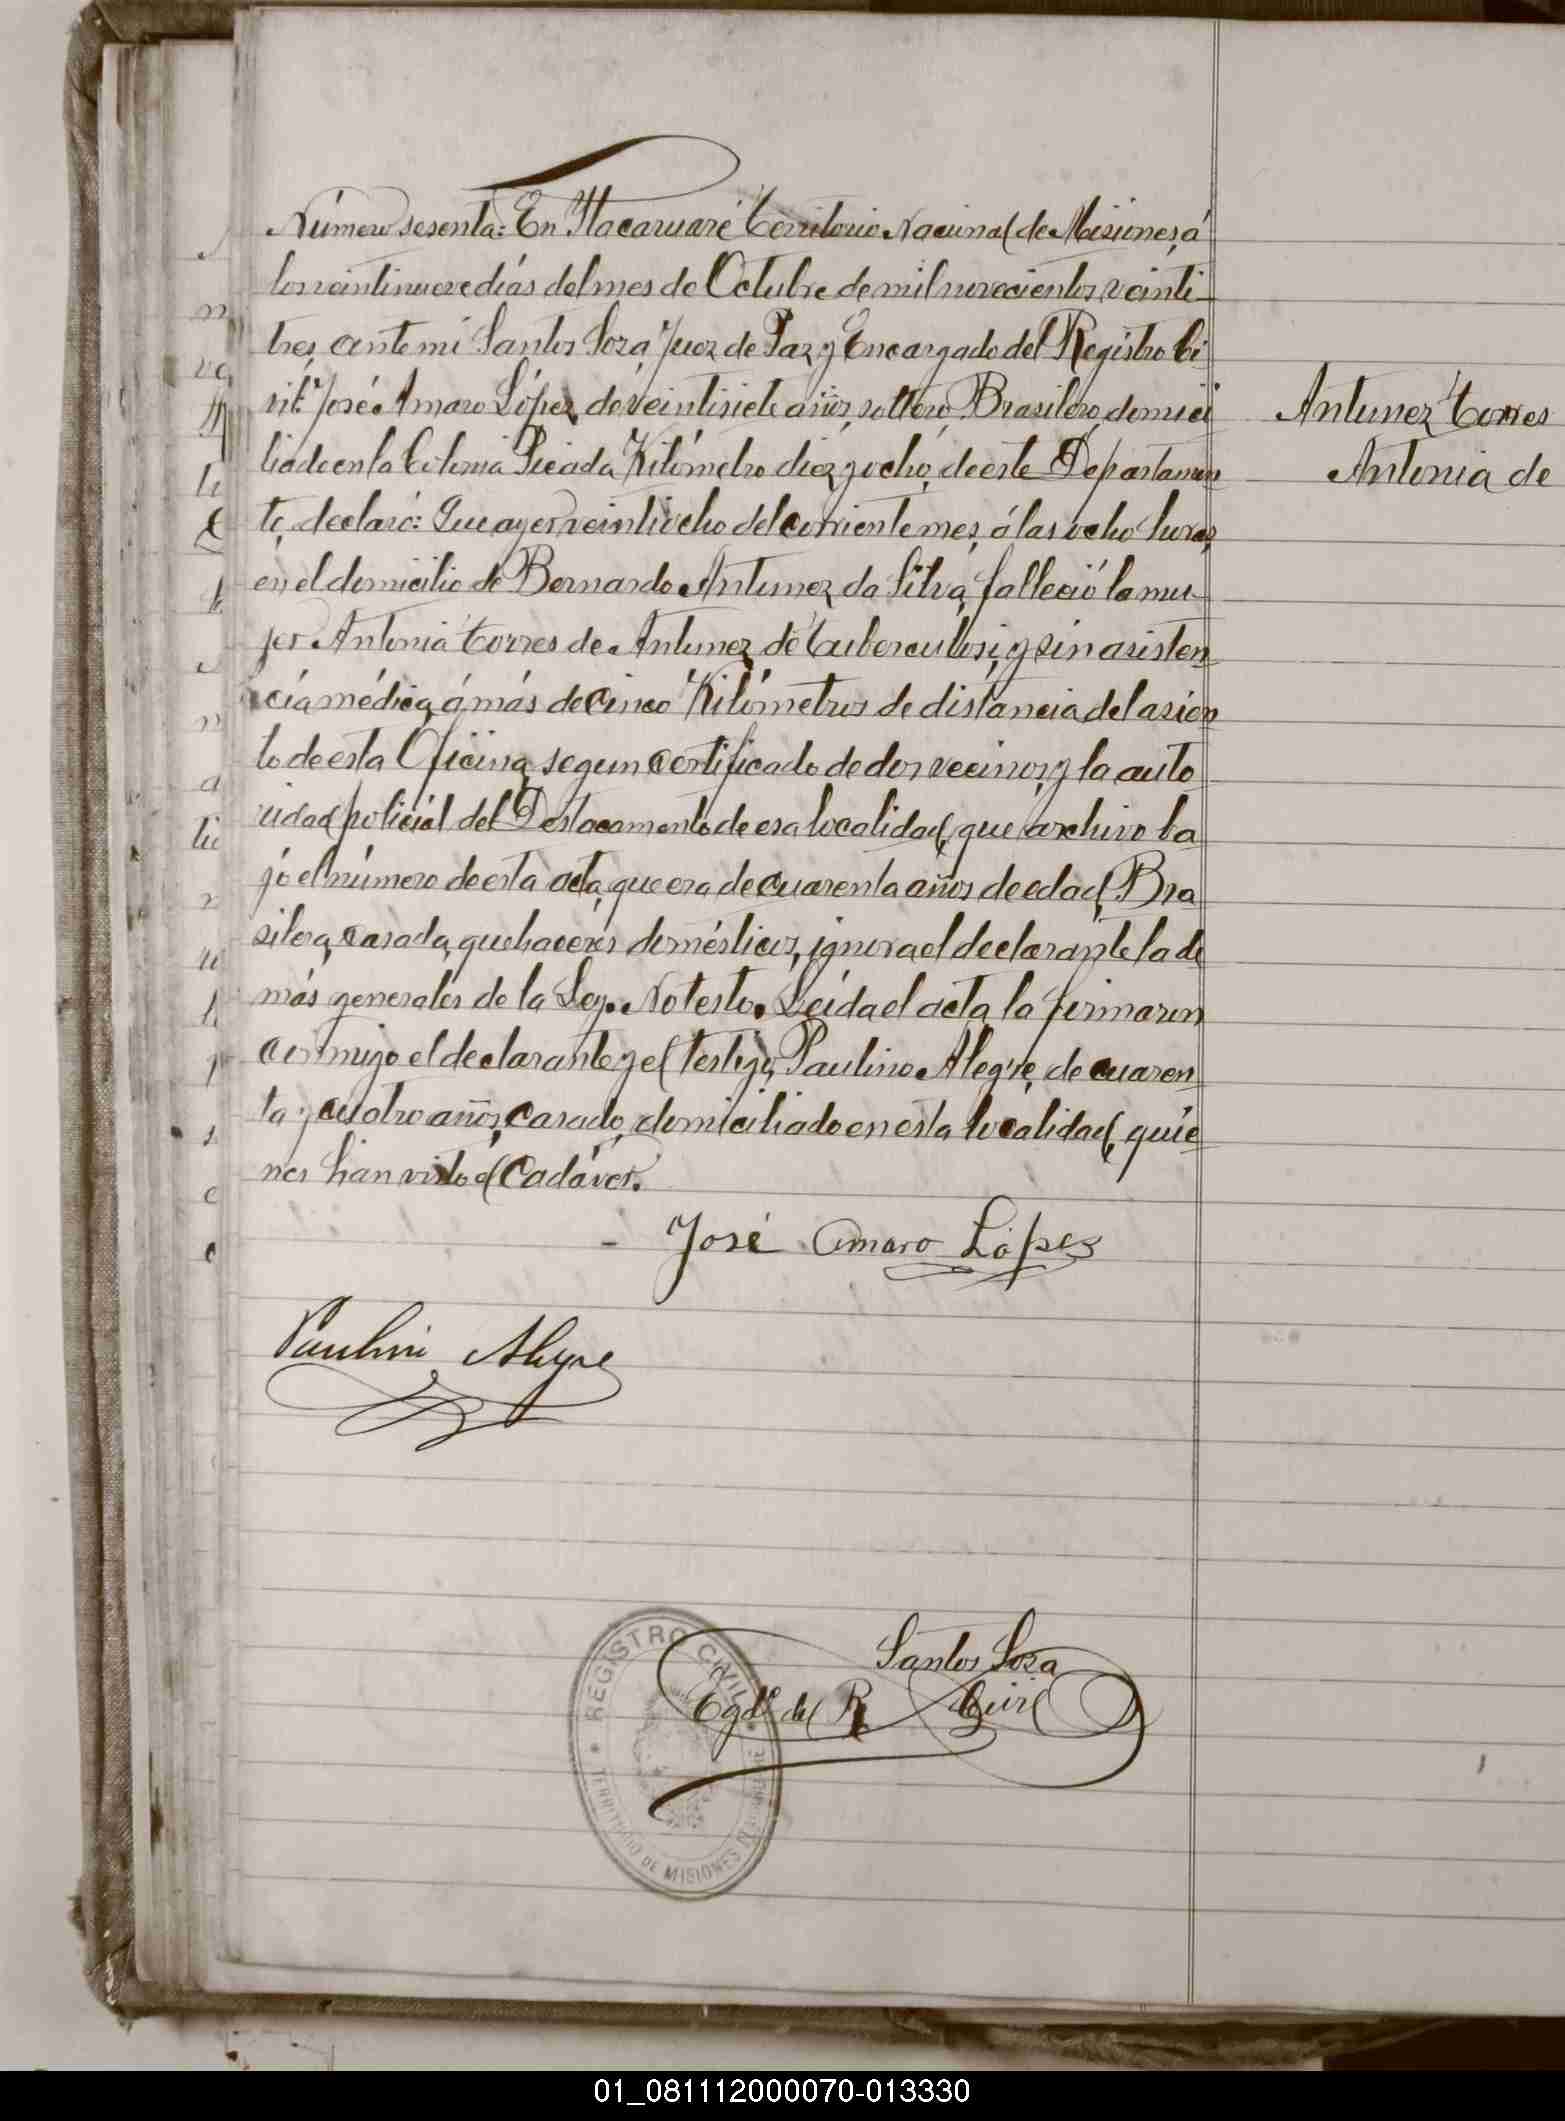 Número sesenta: En Itacaruaré Territorio Nacional de Misiones, á
los veintinueve días del mes de Octubre de mil novecientos veinti-
tres, ante mí Santos Soza, Juez de Paz y Encargado del Registro Ci-
vil: José Amaro López, de veintisiete años, soltero, Brasilero, domici
liado en la Colonia Picada Kilómetro diez y ocho, de este Departamen
to, declaró: Que ayer veintiocho del corriente mes, á las ocho horas,
en el domicilio de Bernardo Antunez da Silva, falleció la mu-
jer Antonia Torres de Antunez, de tuberculosi, y sin asisten
cia médica, á más de cinco Kilómetros de distancia del asien
to de esta Oficina, segun certificado de dos vecinos, y la auto
ridad policial del Destacamento de esa localidad, que archivo ba
jo el número de esta acta, que era de cuarenta años de edad, Bra
silera, casada, quehaceres domésticos, ignora el declarante la de
más generales de la Ley. No testo. Leida el acta la firmaron
conmigo el declarante y el testigo, Paulino Alegre, de cuaren
ta y cuatro años, casado, domiciliado en esta localidad, quie
nes han visto el Cadáver.
Antunez Torres
Antonia de
José Amaro López
Paulino Alegre
Santos Soza
Egdo. del R. Civil
REGISTRO CIVIL
TERRITORIO DE MISIONES
01_081112000070-013330